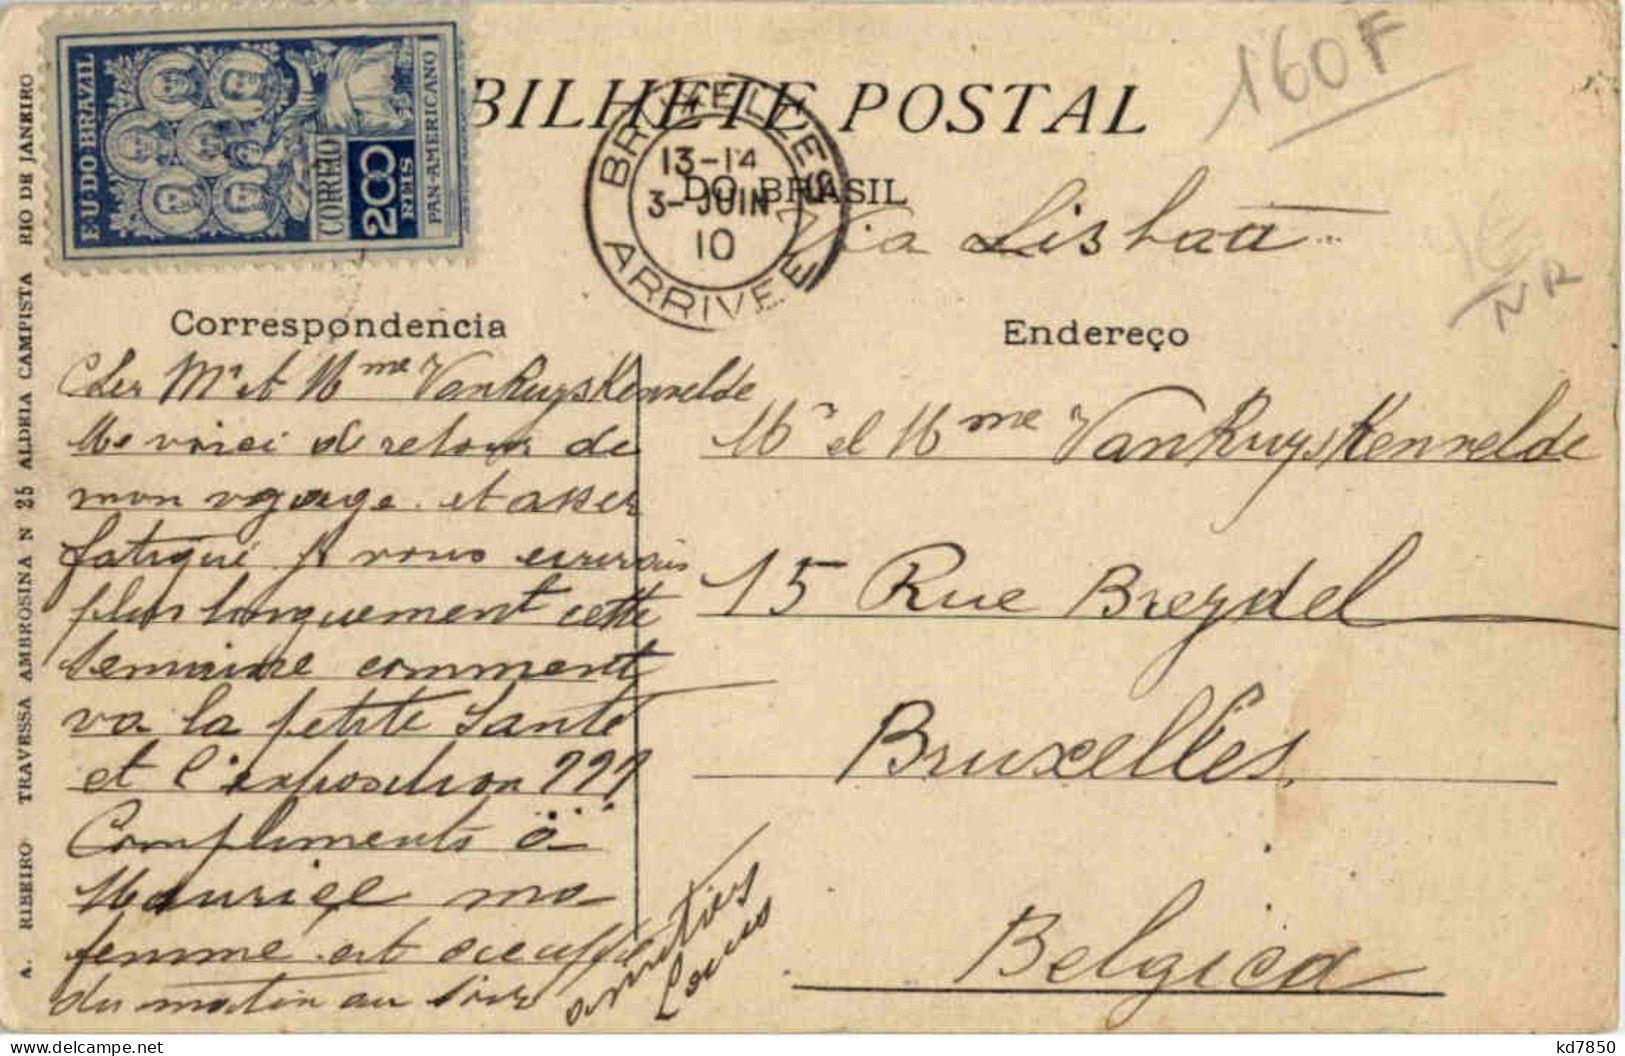 E·U·DO BRAZIL
CORREIO
200
REIS
PAN-AMERICANO
BILHETE POSTAL
DO BRASIL
BRUXELLES
13-14
3-JUIN
10
ARRIVEE
160F
Via Lisboa
NR
A. RIBEIRO TRAVESSA AMBROSINA N 25 ALDEIA CAMPISTA RIO DE JANEIRO
Correspondencia
Cher Mr et Mme VanRuysKennelde
Me voici de retour de
mon voyage. et assez
fatigué je vous ecrirais
plus longuement cette
semaine comment
va la petite Santé
et l'exposition ???
Compliments à
Maurice ma
femme est occupée
du matin au soir
amitiés
Louis
Endereço
Mr et Mme VanRuysKennelde
15 Rue Breydel
Bruxelles
Belgica
kd7850